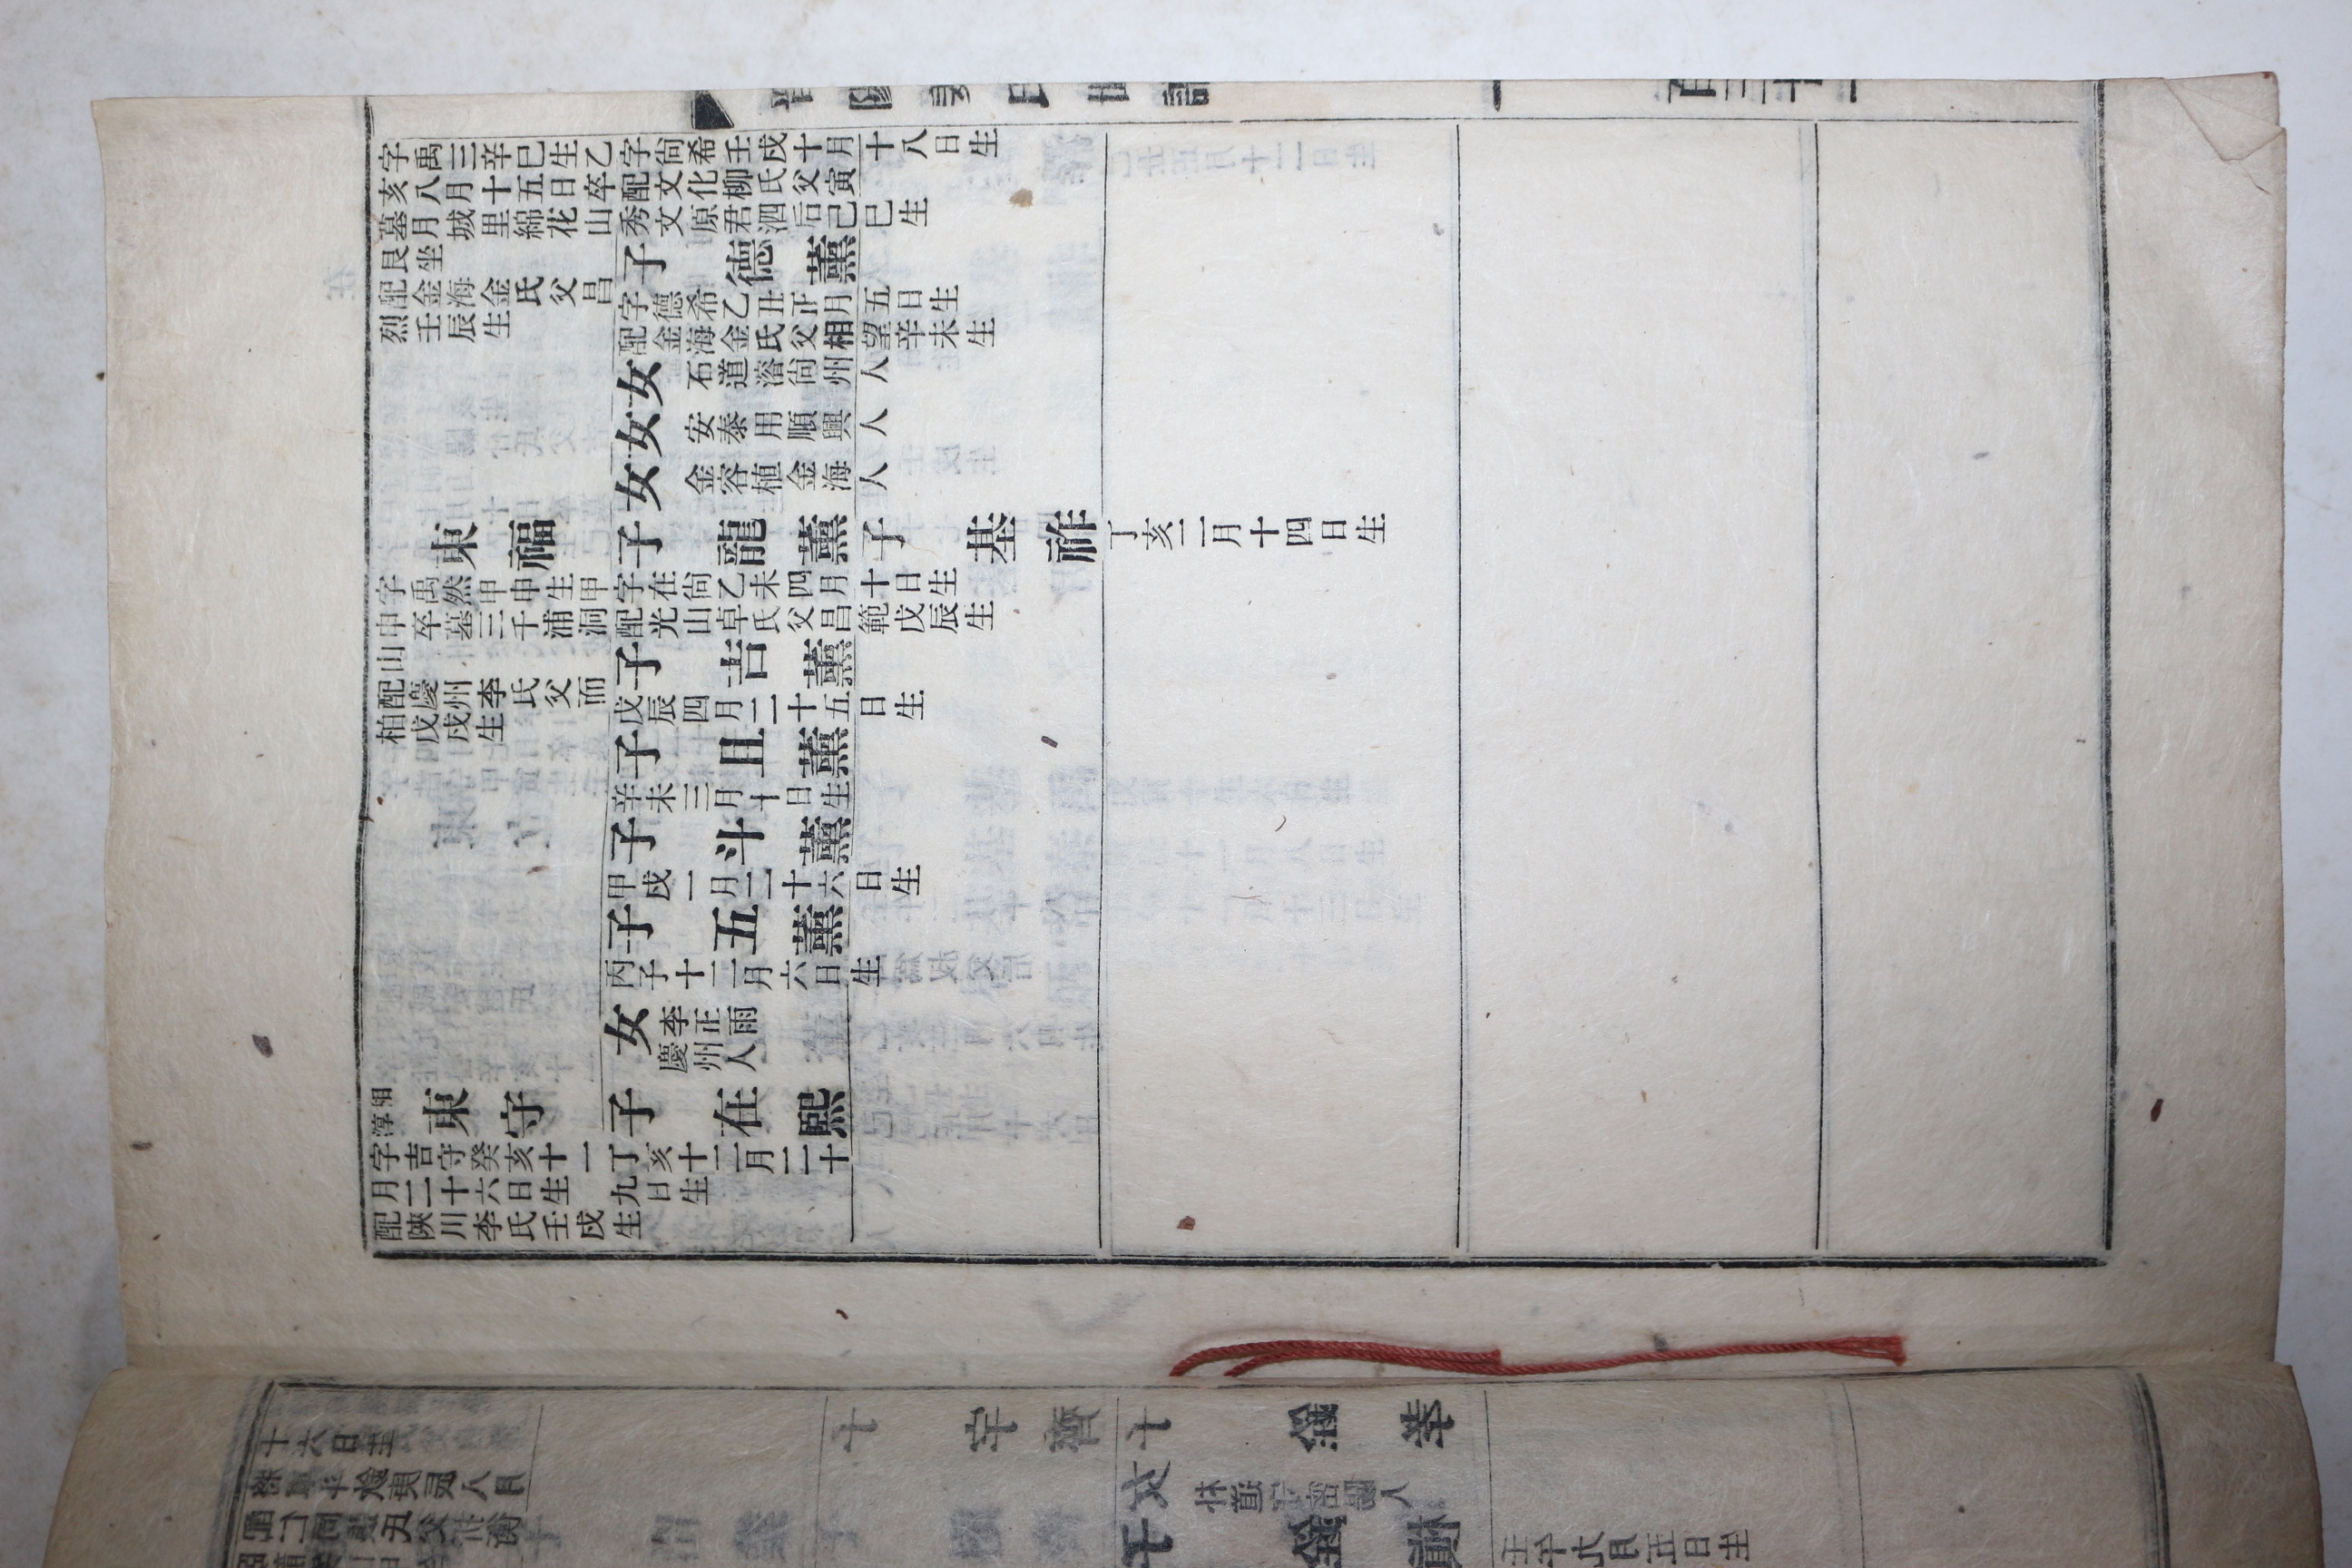 字禹三辛巳生乙
亥八月十五日卒
墓月城里綿花山
艮坐
配金海金氏父昌
烈壬辰生
字尙希壬戌十月十八日生
配文化柳氏父寅
秀文原君泗后己巳生
子德薰
字德希乙丑正月五日生
配金海金氏父相望辛未生
女石道溶尙州人
女安泰用順興人
女金容植金海人
東福
字禹然甲申生甲
申卒墓三千浦洞
山
配慶州李氏父而
柏戊戌生
子龍薰
字在尙乙未四月十日生
配光山卓氏父昌範戊辰生
子基祚
丁亥二月十四日生
子吉薰
戊辰四月二十五日生
子丑薰
辛未三月十日生
子斗薰
甲戌一月二十六日生
子五薰
丙子十二月六日生
女李正雨慶州人
東守
字吉守癸亥十一
月二十六日生
配陜川李氏壬戌生
子在熙
丁亥十二月二十
九日生